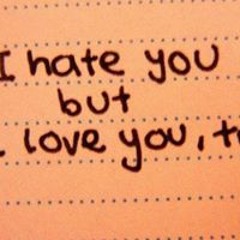 I hate you
but
I love you, t